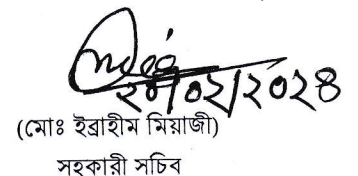 ২০/০২/২০২৪
(মোঃ ইব্রাহীম মিয়াজী)
সহকারী সচিব